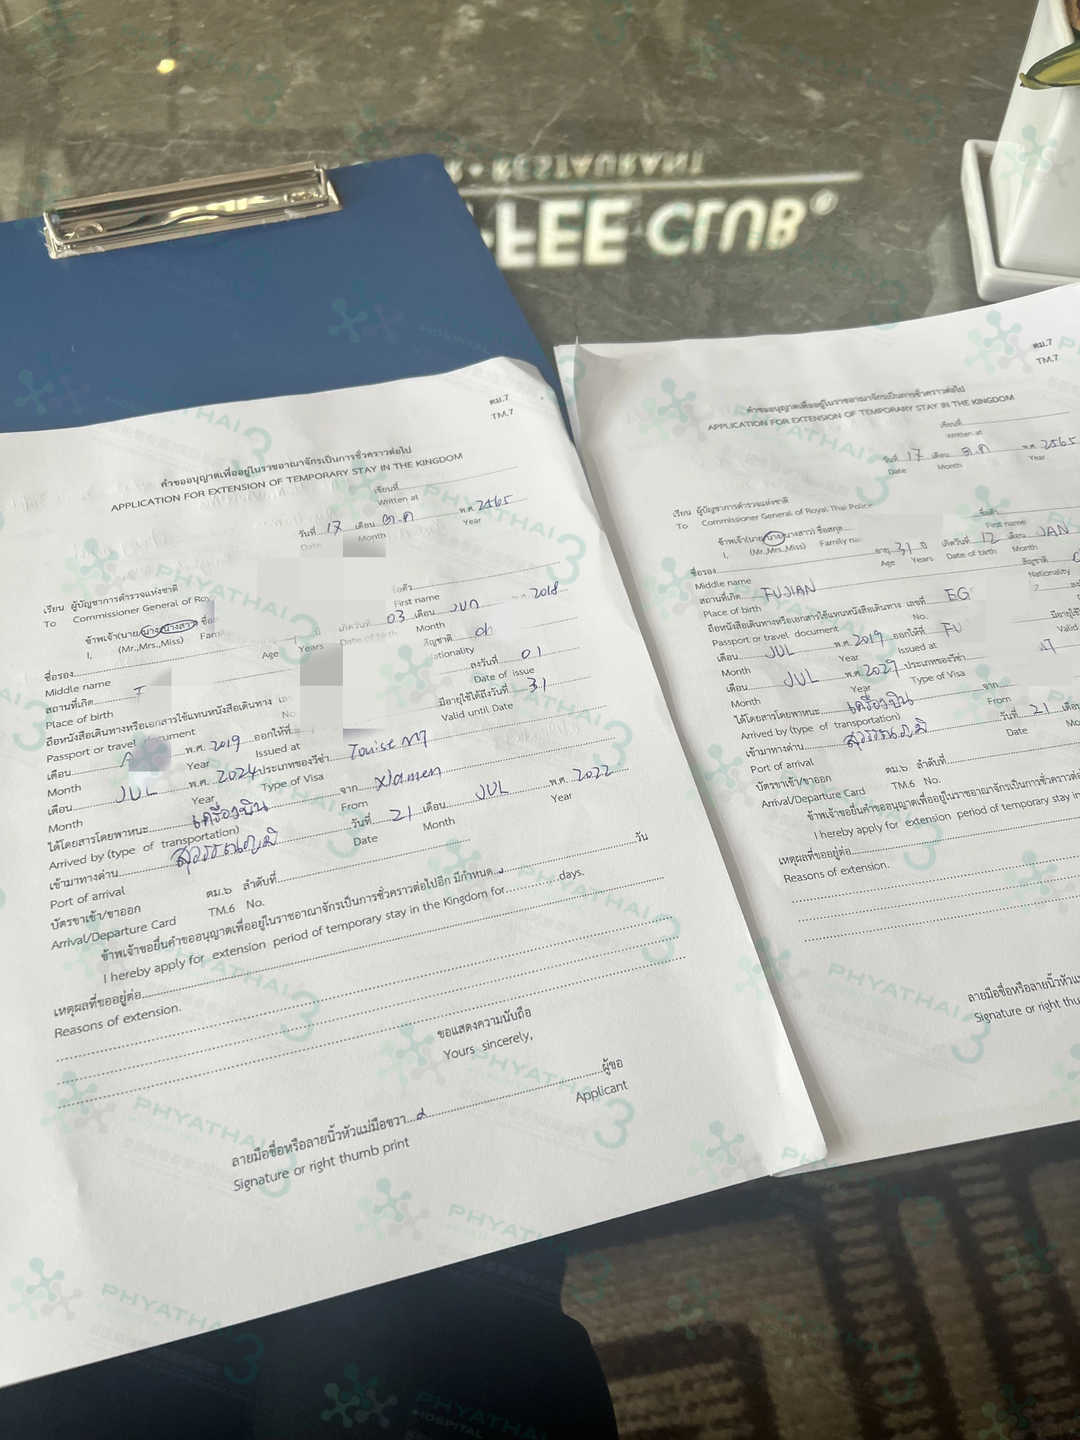 RESTAURANT
FEE CLUB®
ตม.7
TM.7
คำขออนุญาตเพื่ออยู่ในราชอาณาจักรเป็นการชั่วคราวต่อไป
APPLICATION FOR EXTENSION OF TEMPORARY STAY IN THE KINGDOM
เขียนที่
Written at
วันที่ 17 เดือน ต.ค พ.ศ. 2565
Date Month Year
เรียน ผู้บัญชาการตำรวจแห่งชาติ
To Commissioner General of Roy
ข้าพเจ้า(นาย/นาง/นางสาว) ชื่อ
I, (Mr.,Mrs.,Miss)
First name
ชื่อรอง
Middle name
Age Years
ปี เกิดวันที่ 03 เดือน JUN 2018
Date of birth Month
สถานที่เกิด
Place of birth
สัญชาติ
ationality
ถือหนังสือเดินทางหรือเอกสารใช้แทนหนังสือเดินทาง
Passport or travel document
ลงวันที่ 01
Date of issue
เดือน พ.ศ. 2019 ออกให้ที่
Month Year Issued at
มีอายุใช้ได้ถึงวันที่ 31
Valid until Date
เดือน JUL พ.ศ. 2024 ประเภทของวีซ่า
Month Year Type of Visa
ได้โดยสารโดยพาหนะ เครื่องบิน จาก Xiamen
Arrived by (type of transportation) From
เข้ามาทางด่าน สุวรรณภูมิ วันที่ 21 เดือน JUL พ.ศ. 2022
Port of arrival Date Month Year
บัตรขาเข้า/ขาออก ตม.๖ ลำดับที่
Arrival/Departure Card TM.6 No.
ข้าพเจ้าขอยื่นคำขออนุญาตเพื่ออยู่ในราชอาณาจักรเป็นการชั่วคราวต่อไปอีก มีกำหนด วัน
I hereby apply for extension period of temporary stay in the Kingdom for days.
เหตุผลที่ขออยู่ต่อ
Reasons of extension.
ขอแสดงความนับถือ
Yours sincerely,
ลายมือชื่อหรือลายนิ้วหัวแม่มือขวา ผู้ขอ
Signature or right thumb print Applicant
ตม.7
TM.7
คำขออนุญาตเพื่ออยู่ในราชอาณาจักรเป็นการชั่วคราวต่อไป
APPLICATION FOR EXTENSION OF TEMPORARY STAY IN THE KINGDOM
เขียนที่
Written at
วันที่ 17 เดือน ต.ค พ.ศ. 2565
Date Month Year
เรียน ผู้บัญชาการตำรวจแห่งชาติ
To Commissioner General of Royal Thai Police
ข้าพเจ้า(นาย/นาง/นางสาว) ชื่อสกุล
I, (Mr.,Mrs.,Miss) Family na
ชื่อตัว
First name
ชื่อรอง อายุ 31 ปี เกิดวันที่ 12 เดือน JAN
Middle name Age Years Date of birth Month
สถานที่เกิด FUJIAN สัญชาติ
Place of birth Nationality
ถือหนังสือเดินทางหรือเอกสารใช้แทนหนังสือเดินทาง เลขที่ EG
Passport or travel document No.
เดือน JUL พ.ศ. 2019 ออกให้ที่ FU
Month Year Issued at
มีอายุใช้
Valid
เดือน JUL พ.ศ. 2029 ประเภทของวีซ่า
Month Year Type of Visa
ได้โดยสารโดยพาหนะ เครื่องบิน จาก
Arrived by (type of transportation) From
เข้ามาทางด่าน สุวรรณภูมิ วันที่ 21 เดือน
Port of arrival Date Mo
บัตรขาเข้า/ขาออก ตม.๖ ลำดับที่
Arrival/Departure Card TM.6 No.
ข้าพเจ้าขอยื่นคำขออนุญาตเพื่ออยู่ในราชอาณาจักรเป็นการชั่วคราว
I hereby apply for extension period of temporary stay in
เหตุผลที่ขออยู่ต่อ
Reasons of extension.
ลายมือชื่อหรือลายนิ้วหัวแม่
Signature or right thu
PHYATHAI 3
HOSPITAL